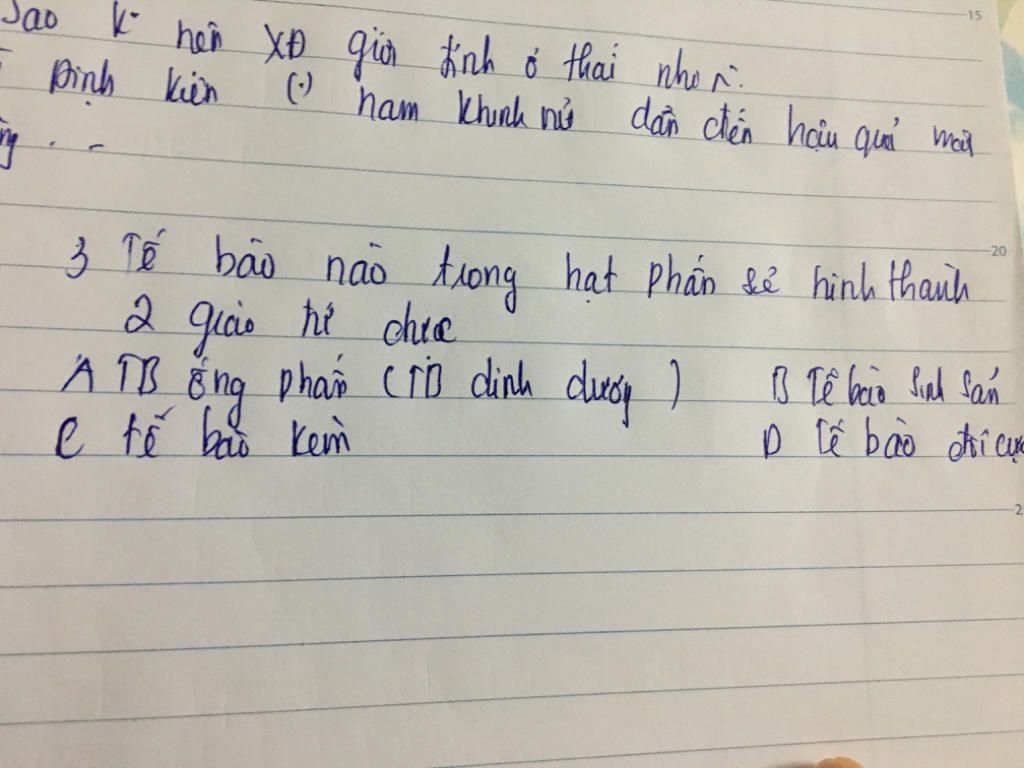 Sao k hên XĐ giới tính ở thai nhi.
Định kiến (.) nam khinh nữ dẫn đến hậu quả
3 Tế bào nào trong hạt phấn sẽ hình thành
2 giao tử đực
A TB ống phấn (TB dinh dưỡng) B Tế bào sinh sản
C tế bào kèm D tế bào đối cực
15
20
2